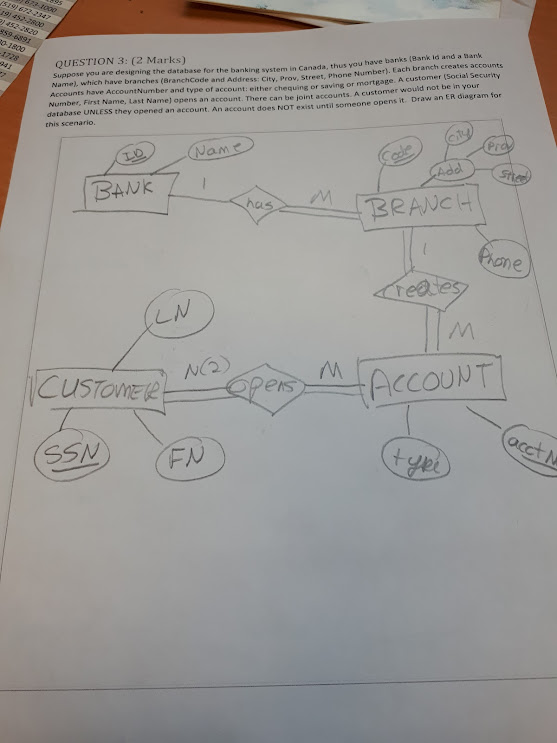 (519) 672-2347
QUESTION 3: (2 Marks)
Suppose you are designing the database for the banking system in Canada, thus you have banks (Bank Id and a Bank
Name), which have branches (BranchCode and Address: City, Prov, Street, Phone Number). Each branch creates accounts
Accounts have AccountNumber and type of account: either chequing or saving or mortgage. A customer (Social Security
Number, First Name, Last Name) opens an account. There can be joint accounts. A customer would not be in your
database UNLESS they opened an account. An account does NOT exist until someone opens it. Draw an ER diagram for
this scenario.
ID
Name
Code
City
Prov
Add
Street
BANK
1
has
M
BRANCH
Phone
1
Creates
M
LN
CUSTOMER
N(2)
opens
M
ACCOUNT
SSN
FN
type
acctN